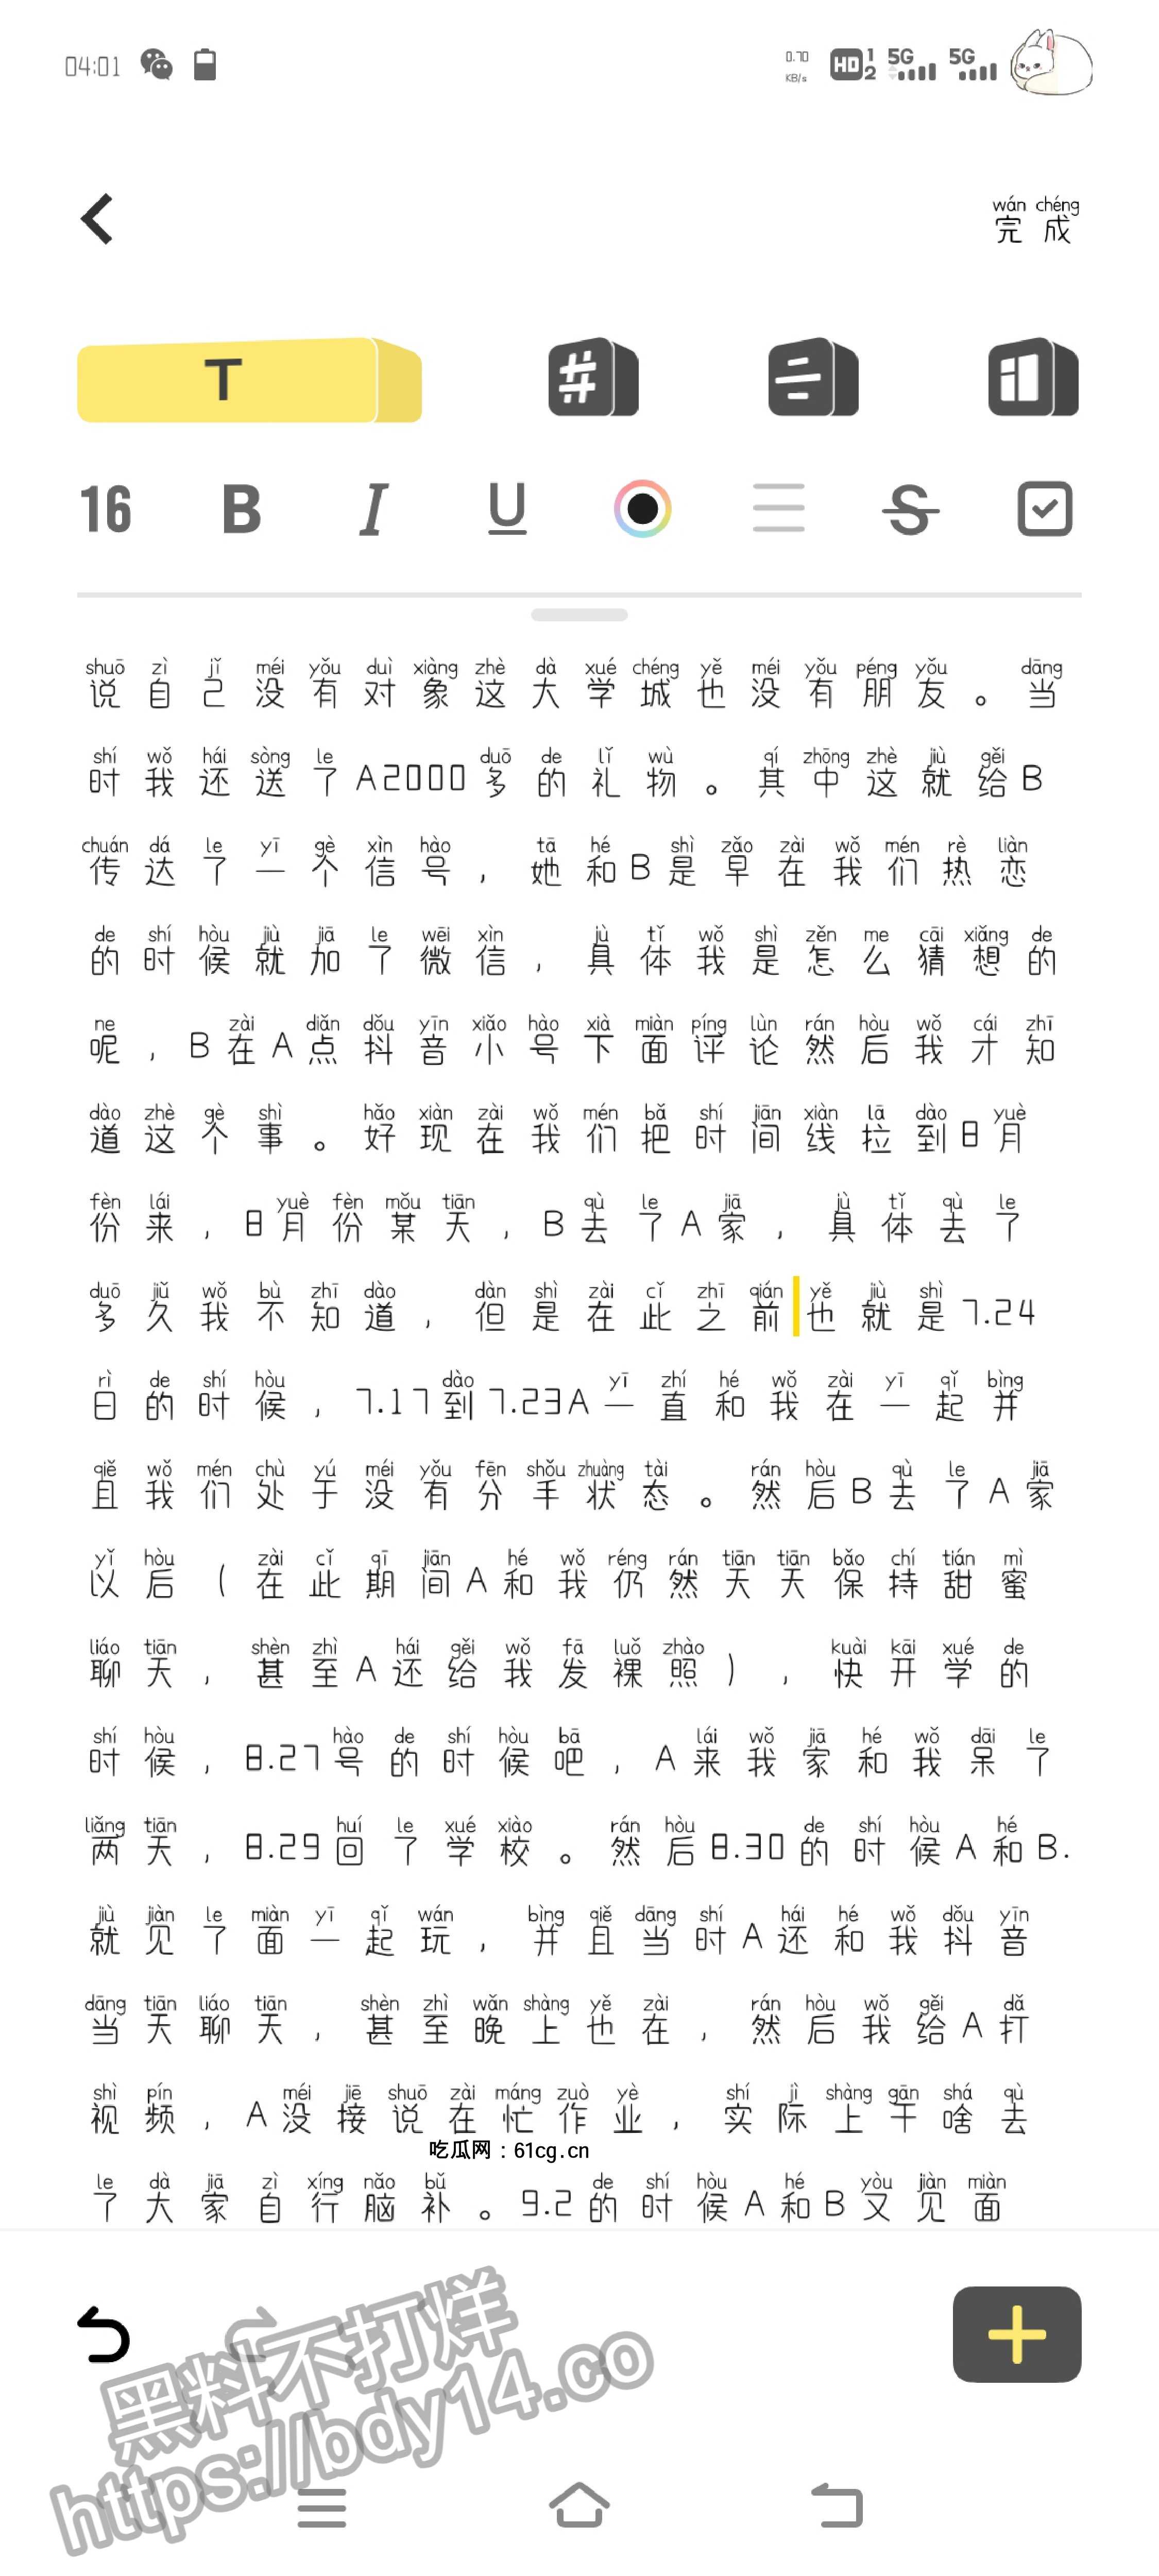 04:01
0.70 KB/s HD 1 2 5G 5G
wán chéng
完成
T
16 B I U S
shuō zì jǐ méi yǒu duì xiàng zhè dà xué chéng yě méi yǒu péng yǒu dāng
说自己没有对象这大学城也没有朋友。当
shí wǒ hái sòng le duō de lǐ wù qí zhōng zhè jiù gěi
时我还送了A2000多的礼物。其中这就给B
chuán dá le yī gè xìn hào tā hé shì zǎo zài wǒ mén rè liàn
传达了一个信号，她和B是早在我们热恋
de shí hòu jiù jiā le wēi xìn jù tǐ wǒ shì zěn me cāi xiǎng de
的时候就加了微信，具体我是怎么猜想的
ne zài diǎn dǒu yīn xiǎo hào xià miàn píng lùn rán hòu wǒ cái zhī
呢，B在A点抖音小号下面评论然后我才知
dào zhè gè shì hǎo xiàn zài wǒ mén bǎ shí jiān xiàn lā dào yuè
道这个事。好现在我们把时间线拉到8月
fèn lái yuè fèn mǒu tiān qù le jiā jù tǐ qù le
份来，8月份某天，B去了A家，具体去了
duō jiǔ wǒ bù zhī dào dàn shì zài cǐ zhī qián yě jiù shì
多久我不知道，但是在此之前也就是7.24
rì de shí hòu dào yī zhí hé wǒ zài yī qǐ bìng
日的时候，7.17到7.23A一直和我在一起并
qiě wǒ mén chù yú méi yǒu fēn shǒu zhuàng tài rán hòu qù le jiā
且我们处于没有分手状态。然后B去了A家
yǐ hòu zài cǐ qī jiān hé wǒ réng rán tiān tiān bǎo chí tián mì
以后（在此期间A和我仍然天天保持甜蜜
liáo tiān shèn zhì hái gěi wǒ fā luǒ zhào kuài kāi xué de
聊天，甚至A还给我发裸照），快开学的
shí hòu hào de shí hòu bā lái wǒ jiā hé wǒ dāi le
时候，8.27号的时候吧，A来我家和我呆了
liǎng tiān huí le xué xiào rán hòu de shí hòu hé
两天，8.29回了学校。然后8.30的时候A和B.
jiù jiàn le miàn yī qǐ wán bìng qiě dāng shí hái hé wǒ dǒu yīn
就见了面一起玩，并且当时A还和我抖音
dāng tiān liáo tiān shèn zhì wǎn shàng yě zài rán hòu wǒ gěi dǎ
当天聊天，甚至晚上也在，然后我给A打
shì pín méi jiē shuō zài máng zuò yè shí jì shàng gān shá qù
视频，A没接说在忙作业，实际上干啥去
吃瓜网：61cg.cn
le dà jiā zì xíng nǎo bǔ de shí hòu hé yòu jiàn miàn
了大家自行脑补。9.2的时候A和B又见面
黑料不打烊
https://bdy14.co